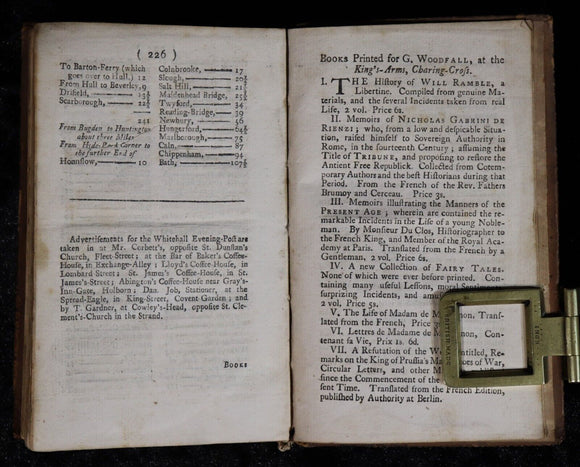 ( 226 )
To Barton-Ferry (which
goes over to Hull.) 12
From Hull to Beverley, 9
Driffield, 13½
Scarborough, 22½
241
From Bugden to Huntington
about three Miles
From Hyde-Park Corner to
the further End of
Hounslow, 10
Colnbrooke, 17
Slough, 20½
Salt Hill, 21½
Maidenhead Bridge, 25½
Twyford, 34
Reading-Bridge, 39
Newbury, 46
Hungerford, 64¾
Marlborough, 75
Caln, 87
Chippenham, 94
Bath, 107½
Advertisements for the Whitehall Evening-Post are
taken in at Mr. Corbett's, opposite St. Dunstan's
Church, Fleet Street; at the Bar of Baker's Coffee-
House, in Exchange-Alley; Lloyd's Coffee-House, in
Lombard Street; St. James's Coffee-House, in St.
James's-Street; Abington's Coffee-House near Gray's-
Inn-Gate, Holborn; Dan. Job, Stationer, at the
Spread-Eagle, in King-Street, Covent Garden; and
by T. Gardner, at Cowley's-Head, opposite St. Cle-
ment's-Church in the Strand.
BOOKS
BOOKS Printed for G. WOODFALL, at the
King's-Arms, Charing-Cross.
I. THE History of WILL RAMBLE, a
Libertine. Compiled from genuine Ma-
terials, and the several Incidents taken from real
Life, 2 vol. Price 6s.
II. Memoirs of NICHOLAS GABRINI DE
RIENZI; who, from a low and despicable Situa-
tion, raised himself to Sovereign Authority in
Rome, in the fourteenth Century; assuming the
Title of TRIBUNE, and proposing to restore the
Antient Free Republick. Collected from Cotem-
porary Authors and the best Historians during that
Period. From the French of the Rev. Fathers
Brumoy and Cerceau. Price 3s.
III. Memoirs illustrating the Manners of the
PRESENT AGE; wherein are contained the re-
markable Incidents in the Life of a young Noble-
man. By Monsieur Du Clos, Historiographer to
the French King, and Member of the Royal Aca-
demy at Paris. Translated from the French by a
Gentleman. 2 vol. Price 6s.
IV. A new Collection of FAIRY TALES.
None of which were ever before printed. Con-
taining many useful Lessons, moral
surprizing Incidents, and
2 vol. Price 5s.
V. The Life of Madam de non. Trans-
lated from the French, Price
VI. Lettres de Madame de non, Con-
tenant sa Vie, Prix 2s. 6d.
VII. A Refutation of the entitled, Re-
marks on the King of Prussia's of War,
Circular Letters, and other
since the Commencement of the
sent Time. Translated from the French Edition,
published by Authority at Berlin.